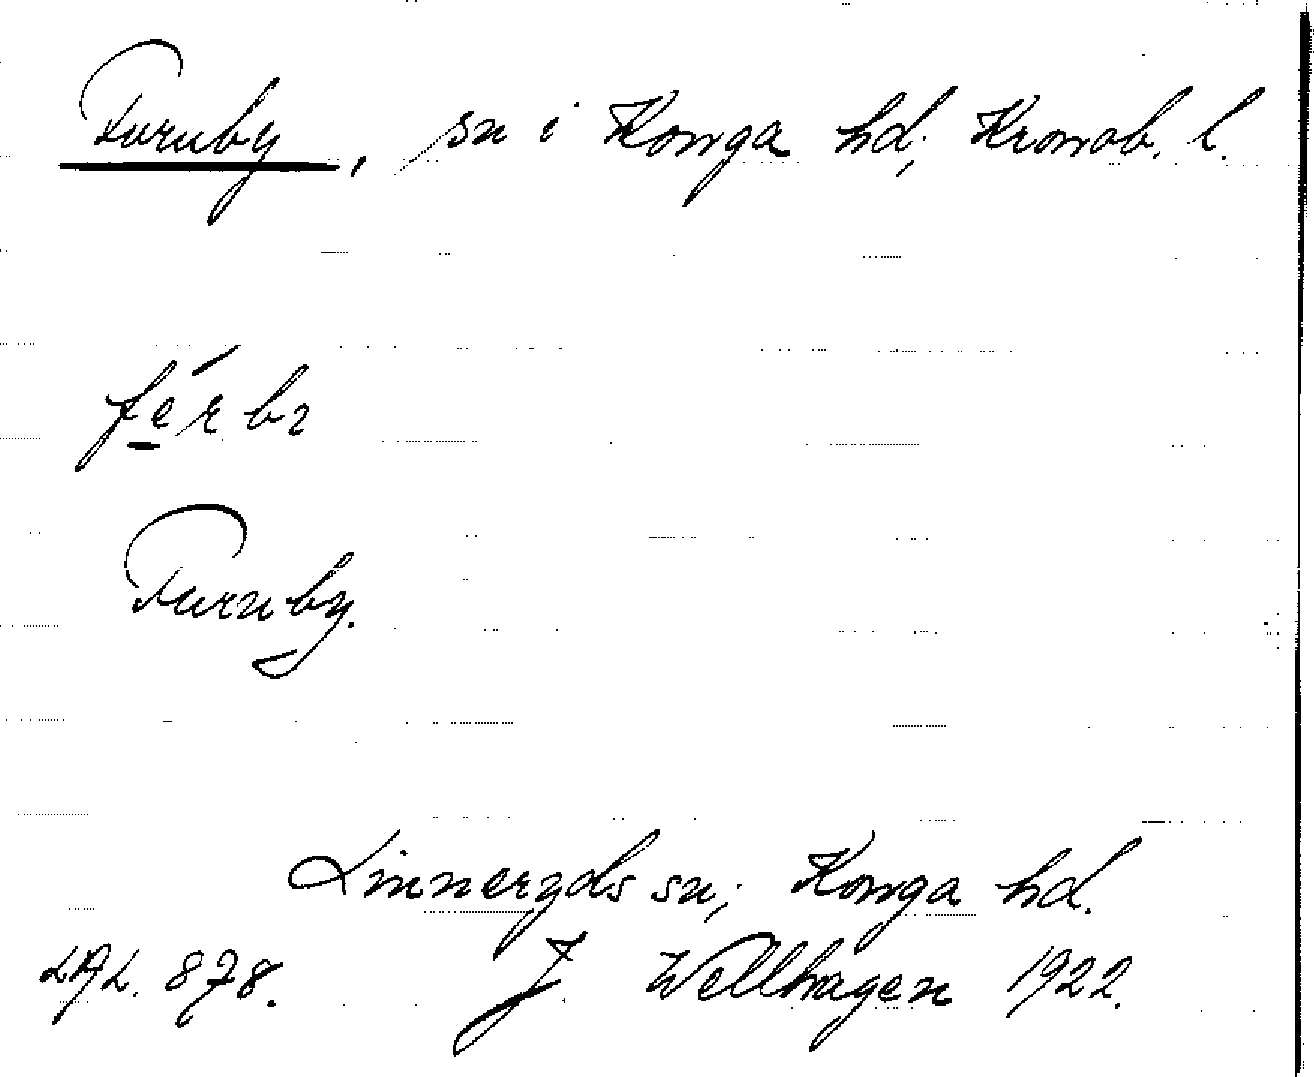 Furuby, sn i Konga hd, Kronob. l.
Furuby.
Linneryds sn, Konga hd.
LAL. 878. J. Wellhagen 1922.